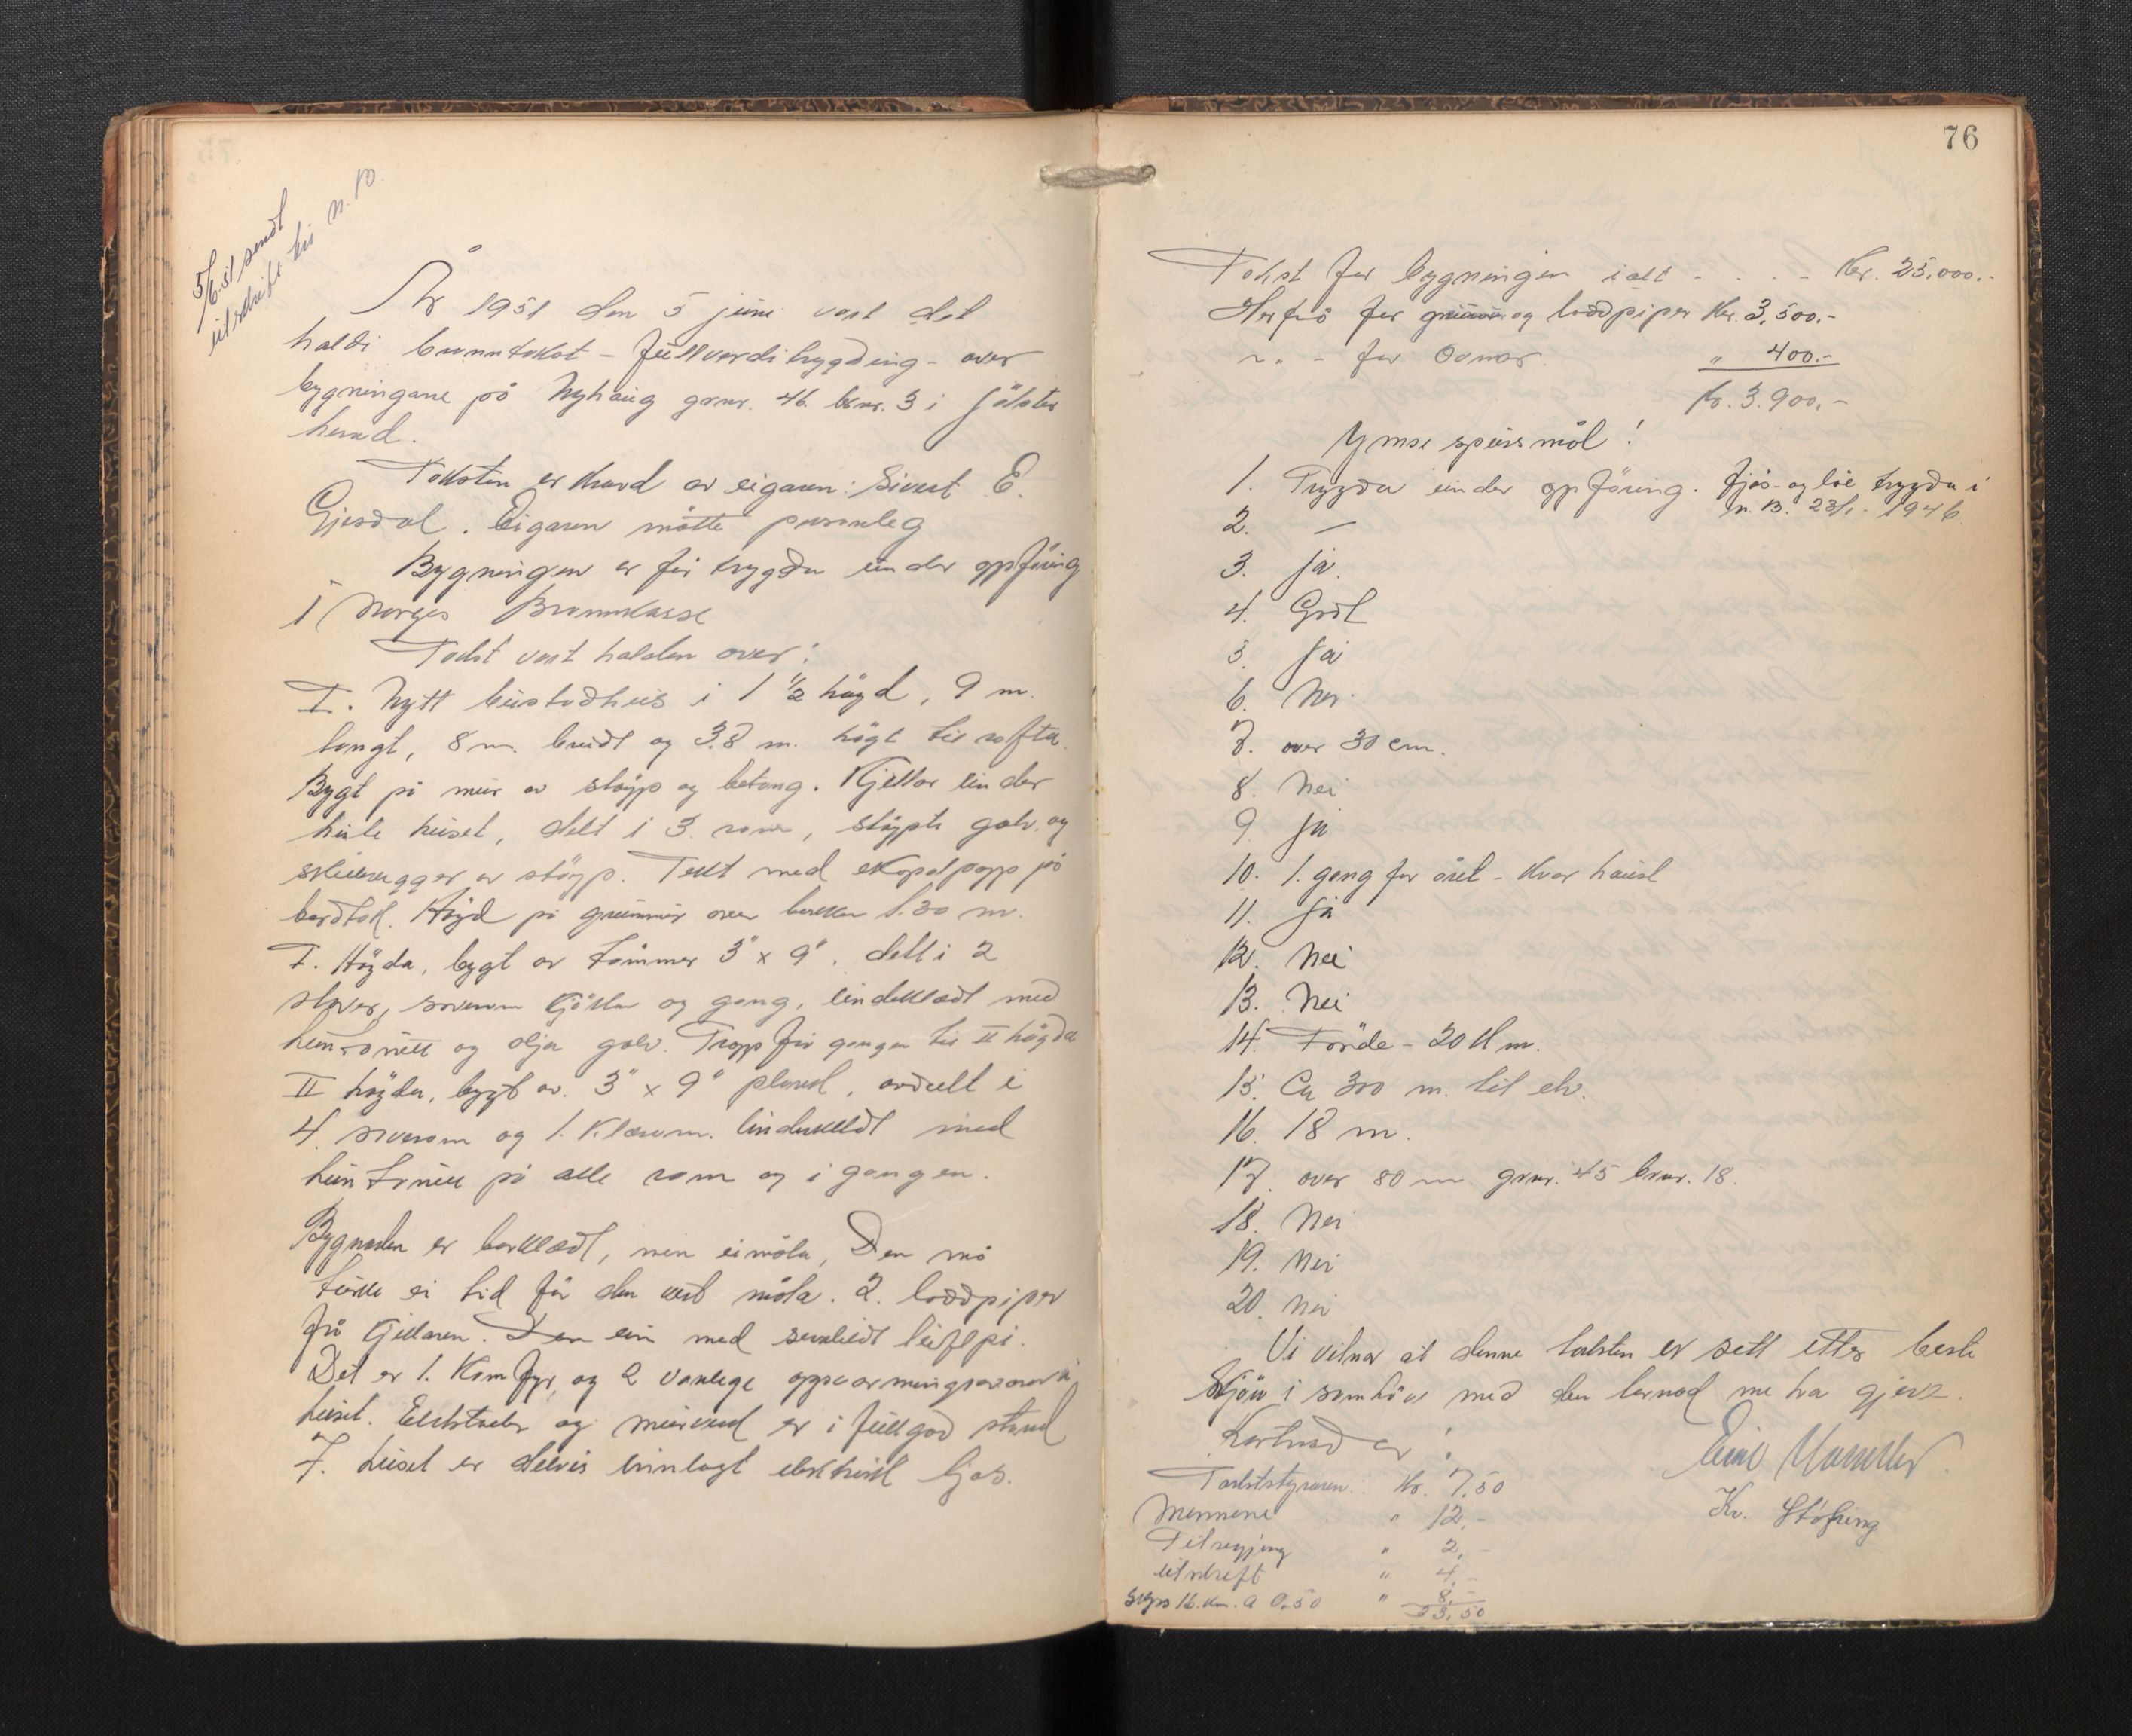 5/6.51 sendt
utskrift til N. B.
År 1951 den 5 juni vart det
haldi branntakst - fullverditrygding - over
bygningane på Nyhaug gnr. 46. bnr. 3 i Jølster
herad.
Taksten er kravd av eigaren: Sivert E.
Gjesdal. Eigaren møtte personleg
Bygningen er før trygda under oppføring
i Norges Brannkasse
Takst vart halden over:
I. Nytt bustadhus i 1 1/2 høgd, 9 m.
langt, 8 m. breidt og 3.8 m. høgt til rafta.
Bygt på mur av støyp og betong. Kjellar under
heile huset, delt i 3. rom, støypt golv. og
skilevegger av støyp. Tekt med skapalpapp på
bordtak. Høgd på grunnmur over bakken 1.30 m.
I. Høgda, bygt av tømmer 3" x 9", delt i 2
stover, soverom kjøken og gang, innekledt med
huntonitt og olja golv. Tropp frå gangen til II høgda
II høgda, bygt av. 3" x 9" plank, avdelt i
4. soverom og 1. klærom. Innekledt med
huntonitt på alle rom og i gangen.
Bygnaden er borkledt, men ei måla, Den må
turke ei tid før den vert måla. 2. loddpiper
frå kjellaren. Den ein med serskildt luftpi.
Det er 1. Komfyr, og 2 vanlege oppvarmingsovnar i
huset. Eldstader og murverk er i fullgod stand
I. huset er delvis innlagt elektrisk ljos.
76
Takst for bygningen i alt - . . - Kr. 25.000.-
Herfrå for grunnmur og loddpiper Kr. 3,500.-
- " - for Ovnar. " 400.-
Kr. 3.900.-
Ymse spursmål!
1. Trygda under oppføring. Fjøs- og løe trygda i
N. B. 23/1.- 1946.
2. -
3. Ja.
4. Godt
5. Ja
6. Nei.
7. over 30 cm.
8. Nei
9. Ja
10. 1. gang for året - kvar haust
11. Ja
12. Nei
13. Nei
14. Førde - 20 km.
15. Ca 300 m. til elv.
16. 18 m.
17. over 80 m. gnr. 45 bnr. 18.
18. Nei
19. Nei
20. Nei
Vi vitnar at denne taksten er sett etter beste
Skjøn i samhøve med den lovnad me ha gjeve.
Kostnad er:
Takststyraren: Kr. 7.50
Mennene " 12,-
Tilseying " 2,-
utskrift " 4,-
Skyss 16. km. a 0.50 " 8,-
33,50
Kr. Støfring